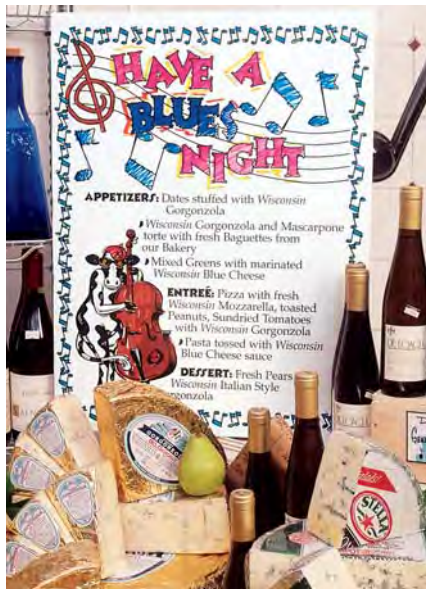 HAVE A
BLUES
NIGHT
APPETIZERS: Dates stuffed with Wisconsin
Gorgonzola
Wisconsin Gorgonzola and Mascarpone
torte with fresh Baguettes from
our Bakery
Mixed Greens with marinated
Wisconsin Blue Cheese
ENTREÉ: Pizza with fresh
Wisconsin Mozzarella, toasted
Peanuts, Sundried Tomatoes
with Wisconsin Gorgonzola
Pasta tossed with Wisconsin
Blue Cheese sauce
DESSERT: Fresh Pears
Wisconsin Italian Style
STELLA